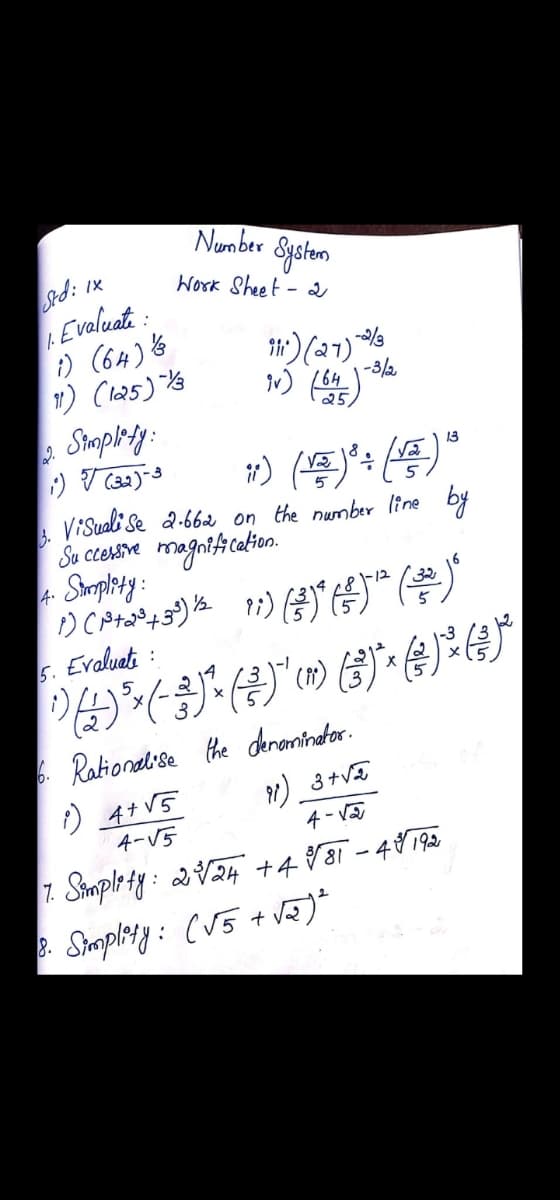 Number System
Std: IX Work Sheet - 2
1. Evaluate :
i) (64)^1/3 iii) (27)^-2/3
ii) (125)^-1/3 iv) (64/25)^-3/2
2. Simplify:
i) ⁵√(32)^-3 ii) (√2/5)^8 ÷ (√2/5)^13
3. Visualise 2.662 on the number line by
Successive magnification.
4. Simplify:
i) (1³+2³+3³)^1/2 ii) (3/5)^4 (8/5)^-12 (32/5)^6
5. Evaluate :
i) (1/2)^5 × (-2/3)^4 × (3/5)^-1 (ii) (2/3)^2 × (2/5)^-3 × (3/5)^2
6. Rationalise the denominator.
i) 4+√5 / 4-√5 ii) 3+√2 / 4-√2
7. Simplify: 2∛24 + 4∛81 - 4∛192
8. Simplify: (√5 + √2)²